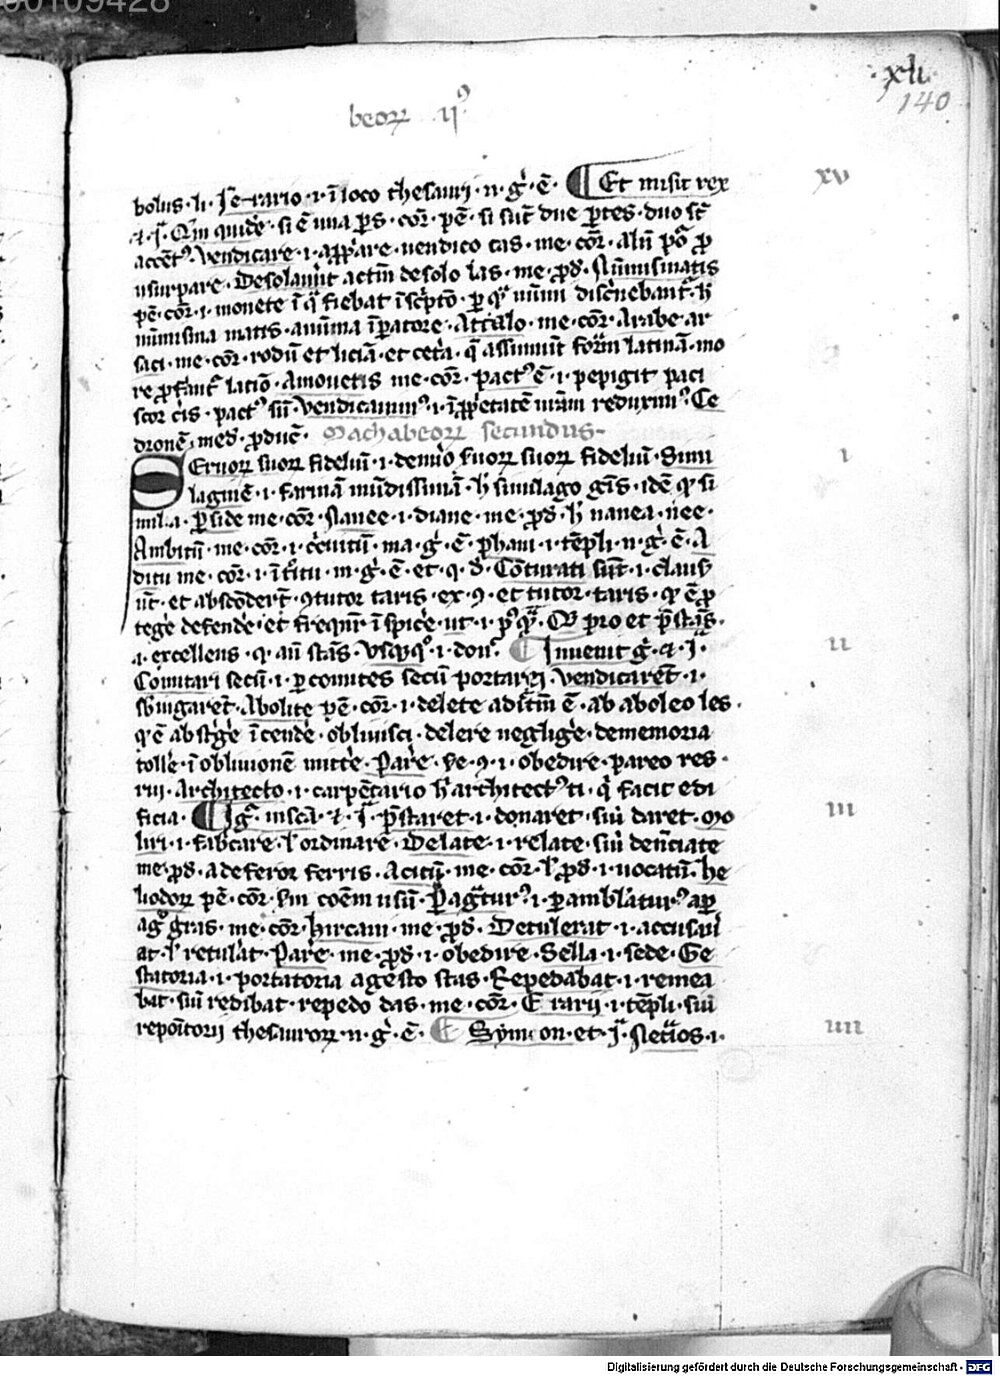 00109428
xli
140
beoꝝ ijꝰ
bolus · li · In erario · i · ī loco thesauri · n · ḡ · ē · ¶ Et misit rex
xv
⁊ · I · Qm̄ quidē · si ē una ps̄ · cor̄ · pē · si sūt due ptes · duo st̄
accētꝰ · vendicare · i · appare · uendico cas · me · cor̄ · aln̄ pō p̄
usurpare · Desolauūt actm̄ desolo las · me · pd̄ · Nūmismatis
pē · cor̄ · i · monete ī q̄ fiebat ī sc̄ptō · p qꝫ nūmi discn̄ebant̄ · h̄
nūmisma matis · anūma īpatore · Attalo · me · cor̄ · Arabe · ar
saci · me · cor̄ · rodū et liciā · et cetā · q̄ assumūt form̄ latinā · mo
re p̄fāt̄ latiō · Amouetis me · cor̄ · pactꝰ ē · i · pepigit paci
scor cis · pactꝰ sū · vendicauimꝰ · i · īpp̄etatē nr̄am reduximꝰ · Ce
dronē · med̄ · pducē · Machabeoꝝ secundus
Seruoꝝ suoꝝ fideliū · i · demō suoꝝ suoꝝ fideliū · Simi
i
laginē · i · farinā mūdissimā · h̄ similago gīs · idē qꝫ si
mila · pside me · cor̄ · Nanee · i · diane · me · pd̄ · h̄ nanea · nee ·
Ambitū · me · cor̄ · i · c̄cuitū · ma · ḡ · ē · phani · i · tēpli · n · ḡ · ē · A
ditu me · cor̄ · i · ītoitu · m · ḡ · ē · et · q · d̄ · Cōturati sūt · i · claus̄
ūt · et abscōdert̄ · ꝯtutor taris · ex · ꝯ · et tutor · taris · qꝫ ē p̄
tegē defendē · et frequn̄t ī spicē · ut · i · pꝰ qꝫ · Ob pro et p̄stās ·
a · excellens · q · an̄ stās · vsqꝫ quo · i · don̄ · ¶ Inuenit ḡ · ⁊ · I ·
ii
Comitari secū · i · p comites secū portari · vendicaret̄ · i ·
sb̄iugaret̄ · Abolite pē · cor̄ · i · delete adītm̄ ē · ab aboleo les ·
qꝫ ē abst̄gē īcendē · obliuisci · delere negligē · dememoria
tollē · ī obliuionē mittē · Parē · se · ꝯ · i · obedire · pareo res ·
rui · Architecto · i · carpētario h̄ architectꝰ ti · q̄ facit edi
ficia · ¶ Iḡ · in sc̄a · ⁊ · I · p̄staret · i · donaret · siū daret · Mo
iii
liri · i · fabcare · l̄ ordinare · Delate · i · relate · siū denūciate
me · pd̄ · a deferor ferris · Acitū · me · cor̄ · l̄ pd̄ · i · uocatū · he
liodoꝝ pē · cor̄ · sm̄ coēm usū · Pagat̄urꝰ · i · pamblaturꝰ · a p
ago gras · me · cor̄ · hircani · me · pd̄ · Detulerat · i · accusau
at · l̄ retulāt · Parē · me · pd̄ · i · obedire · Sella · i · sede · Ge
statoria · i · portatoria a gesto stas · Repedabat · i · remea
bat · siū redibat · repedo das · me · cor̄ · E rarii · i · tēpli · siū
repoītorij thesauroꝝ · n · ḡ · ē · ¶ Symon · et · I · Nectos · i ·
iiii
Digitalisierung gefördert durch die Deutsche Forschungsgemeinschaft - DFG